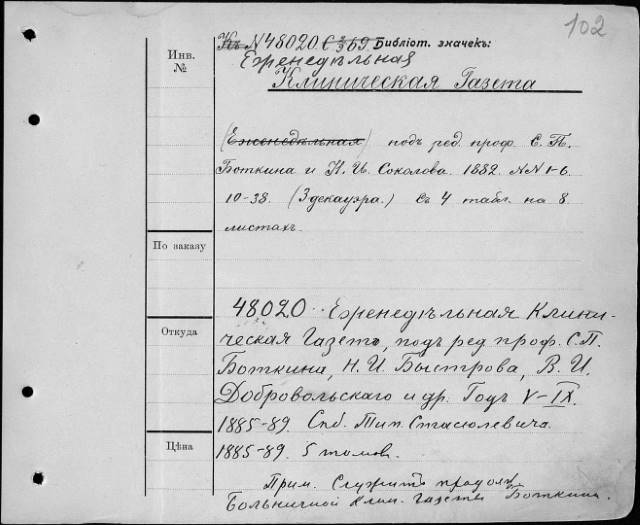 102
N 48020. С 3/69. Библіот. значекъ:
Инв. №
Еженедѣльная
Клиническая Газета
(Еженедѣльная) подъ ред. проф. С. П.
Боткина и Н. И. Соколова. 1882. NN 1-6.
10-38. ( экз.) Съ 4 табл. на 8
листахъ.
По заказу
48020. Еженедѣльная Клини-
Откуда
ческая Газета, подъ ред проф. С. П.
Боткина, Н. И. Быстрова, В. И.
Добровольскаго и др. Годъ V-IX.
1885-89. Спб. Тип. Стасюлевича.
Цѣна
1885-89. 5 томов.
Прим. Служитъ продолж
Больничной Клин. Газеты Боткина.